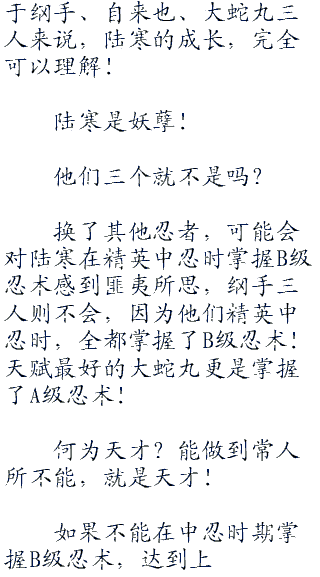 于纲手、自来也、大蛇丸三
人来说，陆寒的成长，完全
可以理解！
陆寒是妖孽！
他们三个就不是吗？
换了其他忍者，可能会
对陆寒在精英中忍时掌握B级
忍术感到匪夷所思，纲手三
人则不会，因为他们精英中
忍时，全都掌握了B级忍术！
天赋最好的大蛇丸更是掌握
了A级忍术！
何为天才？能做到常人
所不能，就是天才！
如果不能在中忍时期掌
握B级忍术，达到上